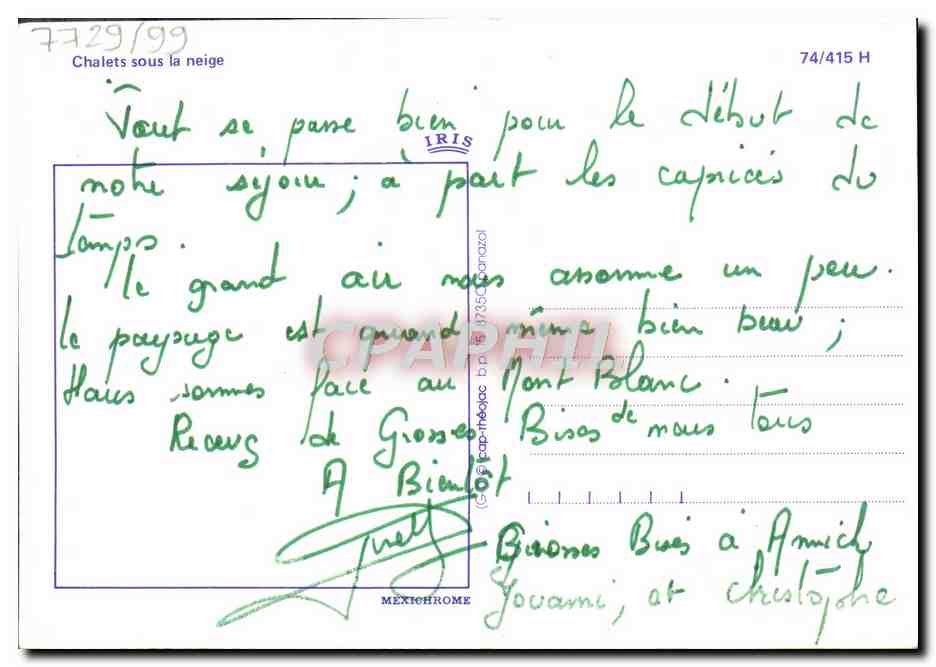 7729/99
Chalets sous la neige
74/415 H
Tout se passe bien pour le début de
IRIS
notre séjour ; à part les caprices du
Temps.
le grand air nous assomme un peu.
le paysage est quand même bien beau ;
Nous sommes face au Mont Blanc.
Recevez de Grosses Bises de nous Tous
A Bientôt
Grosses Bises à Annick
et christophe
MEXICHROME
cap-théojac b.p. 15 87350 panazol
CPAPHIL